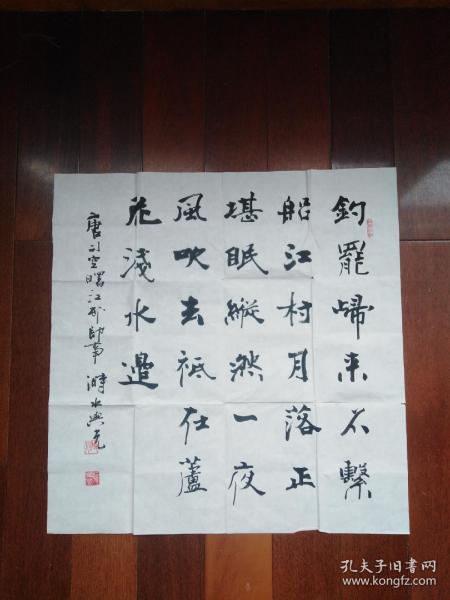 釣罷歸来不繫
船江村月落正
堪眠縱然一夜
風吹去祗在蘆
花淺水邊
唐司空曙江邨即事 水興
孔夫子旧书网
www.kongfz.com